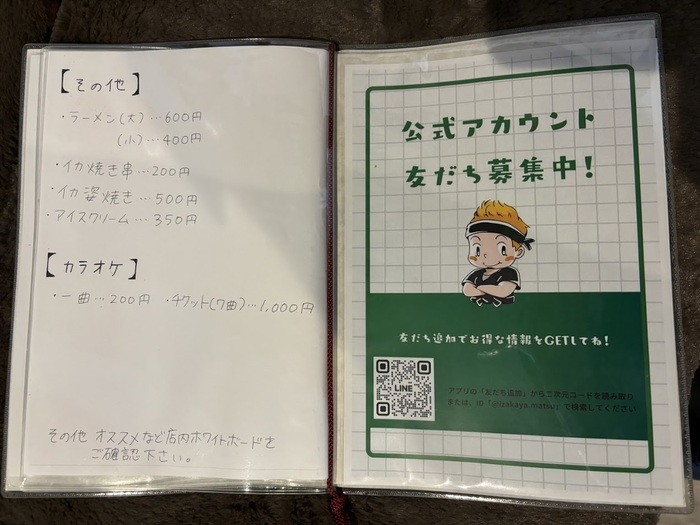 【その他】
・ラーメン(大)…600円
(小)…400円
・イカ焼き串…200円
・イカ姿焼き…500円
・アイスクリーム…350円
【カラオケ】
・一曲…200円 ・チケット(7曲)…1,000円
その他 オススメなど店内ホワイトボードを
ご確認下さい。
公式アカウント
友だち募集中!
友だち追加でお得な情報をGETしてね!
LINE
アプリの「友だち追加」から二次元コードを読み取り
または、ID「@izakaya.matsu」で検索してください